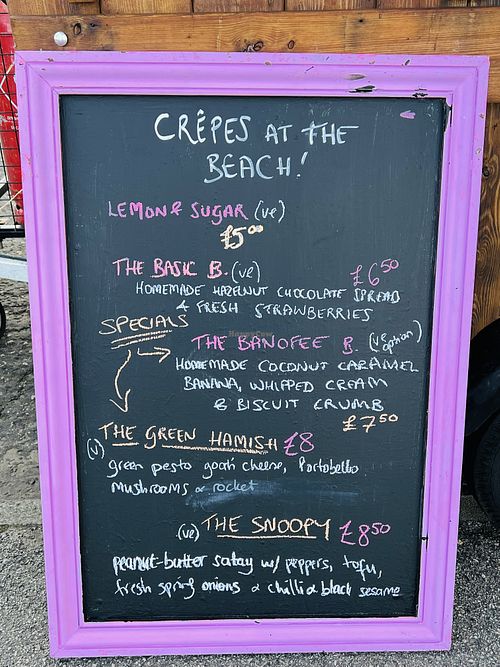 CRÊPES AT THE
BEACH!
LEMON & SUGAR (ve)
£5⁰⁰
THE BASIC B. (ve) £6⁵⁰
HOMEMADE HAZELNUT CHOCOLATE SPREAD
& FRESH STRAWBERRIES
SPECIALS
THE BANOFEE B. (ve option)
HOMEMADE COCONUT CARAMEL
BANANA, WHIPPED CREAM
& BISCUIT CRUMB
£7⁵⁰
(v) THE GREEN HAMISH £8
green pesto, goats cheese, Portobello
Mushrooms & rocket
(ve) THE SNOOPY £8⁵⁰
peanut-butter satay w/ peppers, tofu,
fresh spring onions & chilli & black sesame